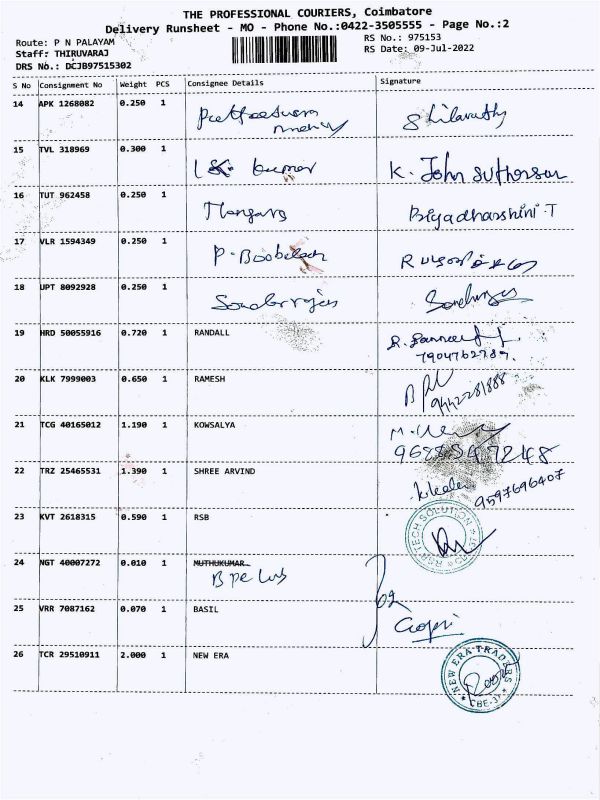 THE PROFESSIONAL COURIERS, Coimbatore
Delivery Runsheet - MO - Phone No.:0422-3505555 - Page No.:2
Route: P N PALAYAM
Staff: THIRUVARAJ
DRS No.: DCJB97515302
RS No.: 975153
RS Date: 09-Jul-2022
S No Consignment No Weight PCS Consignee Details Signature
14 APK 1268082 0.250 1
15 TVL 318969 0.300 1 kumar K. John sutherson
16 TUT 962458 0.250 1 Priyadharshini T
17 VLR 1594349 0.250 1 P. Boobalan
18 UPT 8092928 0.250 1
19 HRD 50055916 0.720 1 RANDALL
7904762789.
20 KLK 7999003 0.650 1 RAMESH
9442281888
21 TCG 40165012 1.190 1 KOWSALYA
9688547248
22 TRZ 25465531 1.390 1 SHREE ARVIND
9597696407
23 KVT 2618315 0.590 1 RSB
24 NGT 40007272 0.010 1 MUTHUKUMAR
25 VRR 7087162 0.070 1 BASIL
Gopi
26 TCR 29510911 2.000 1 NEW ERA
NEW ERA TRADERS
CBE-37